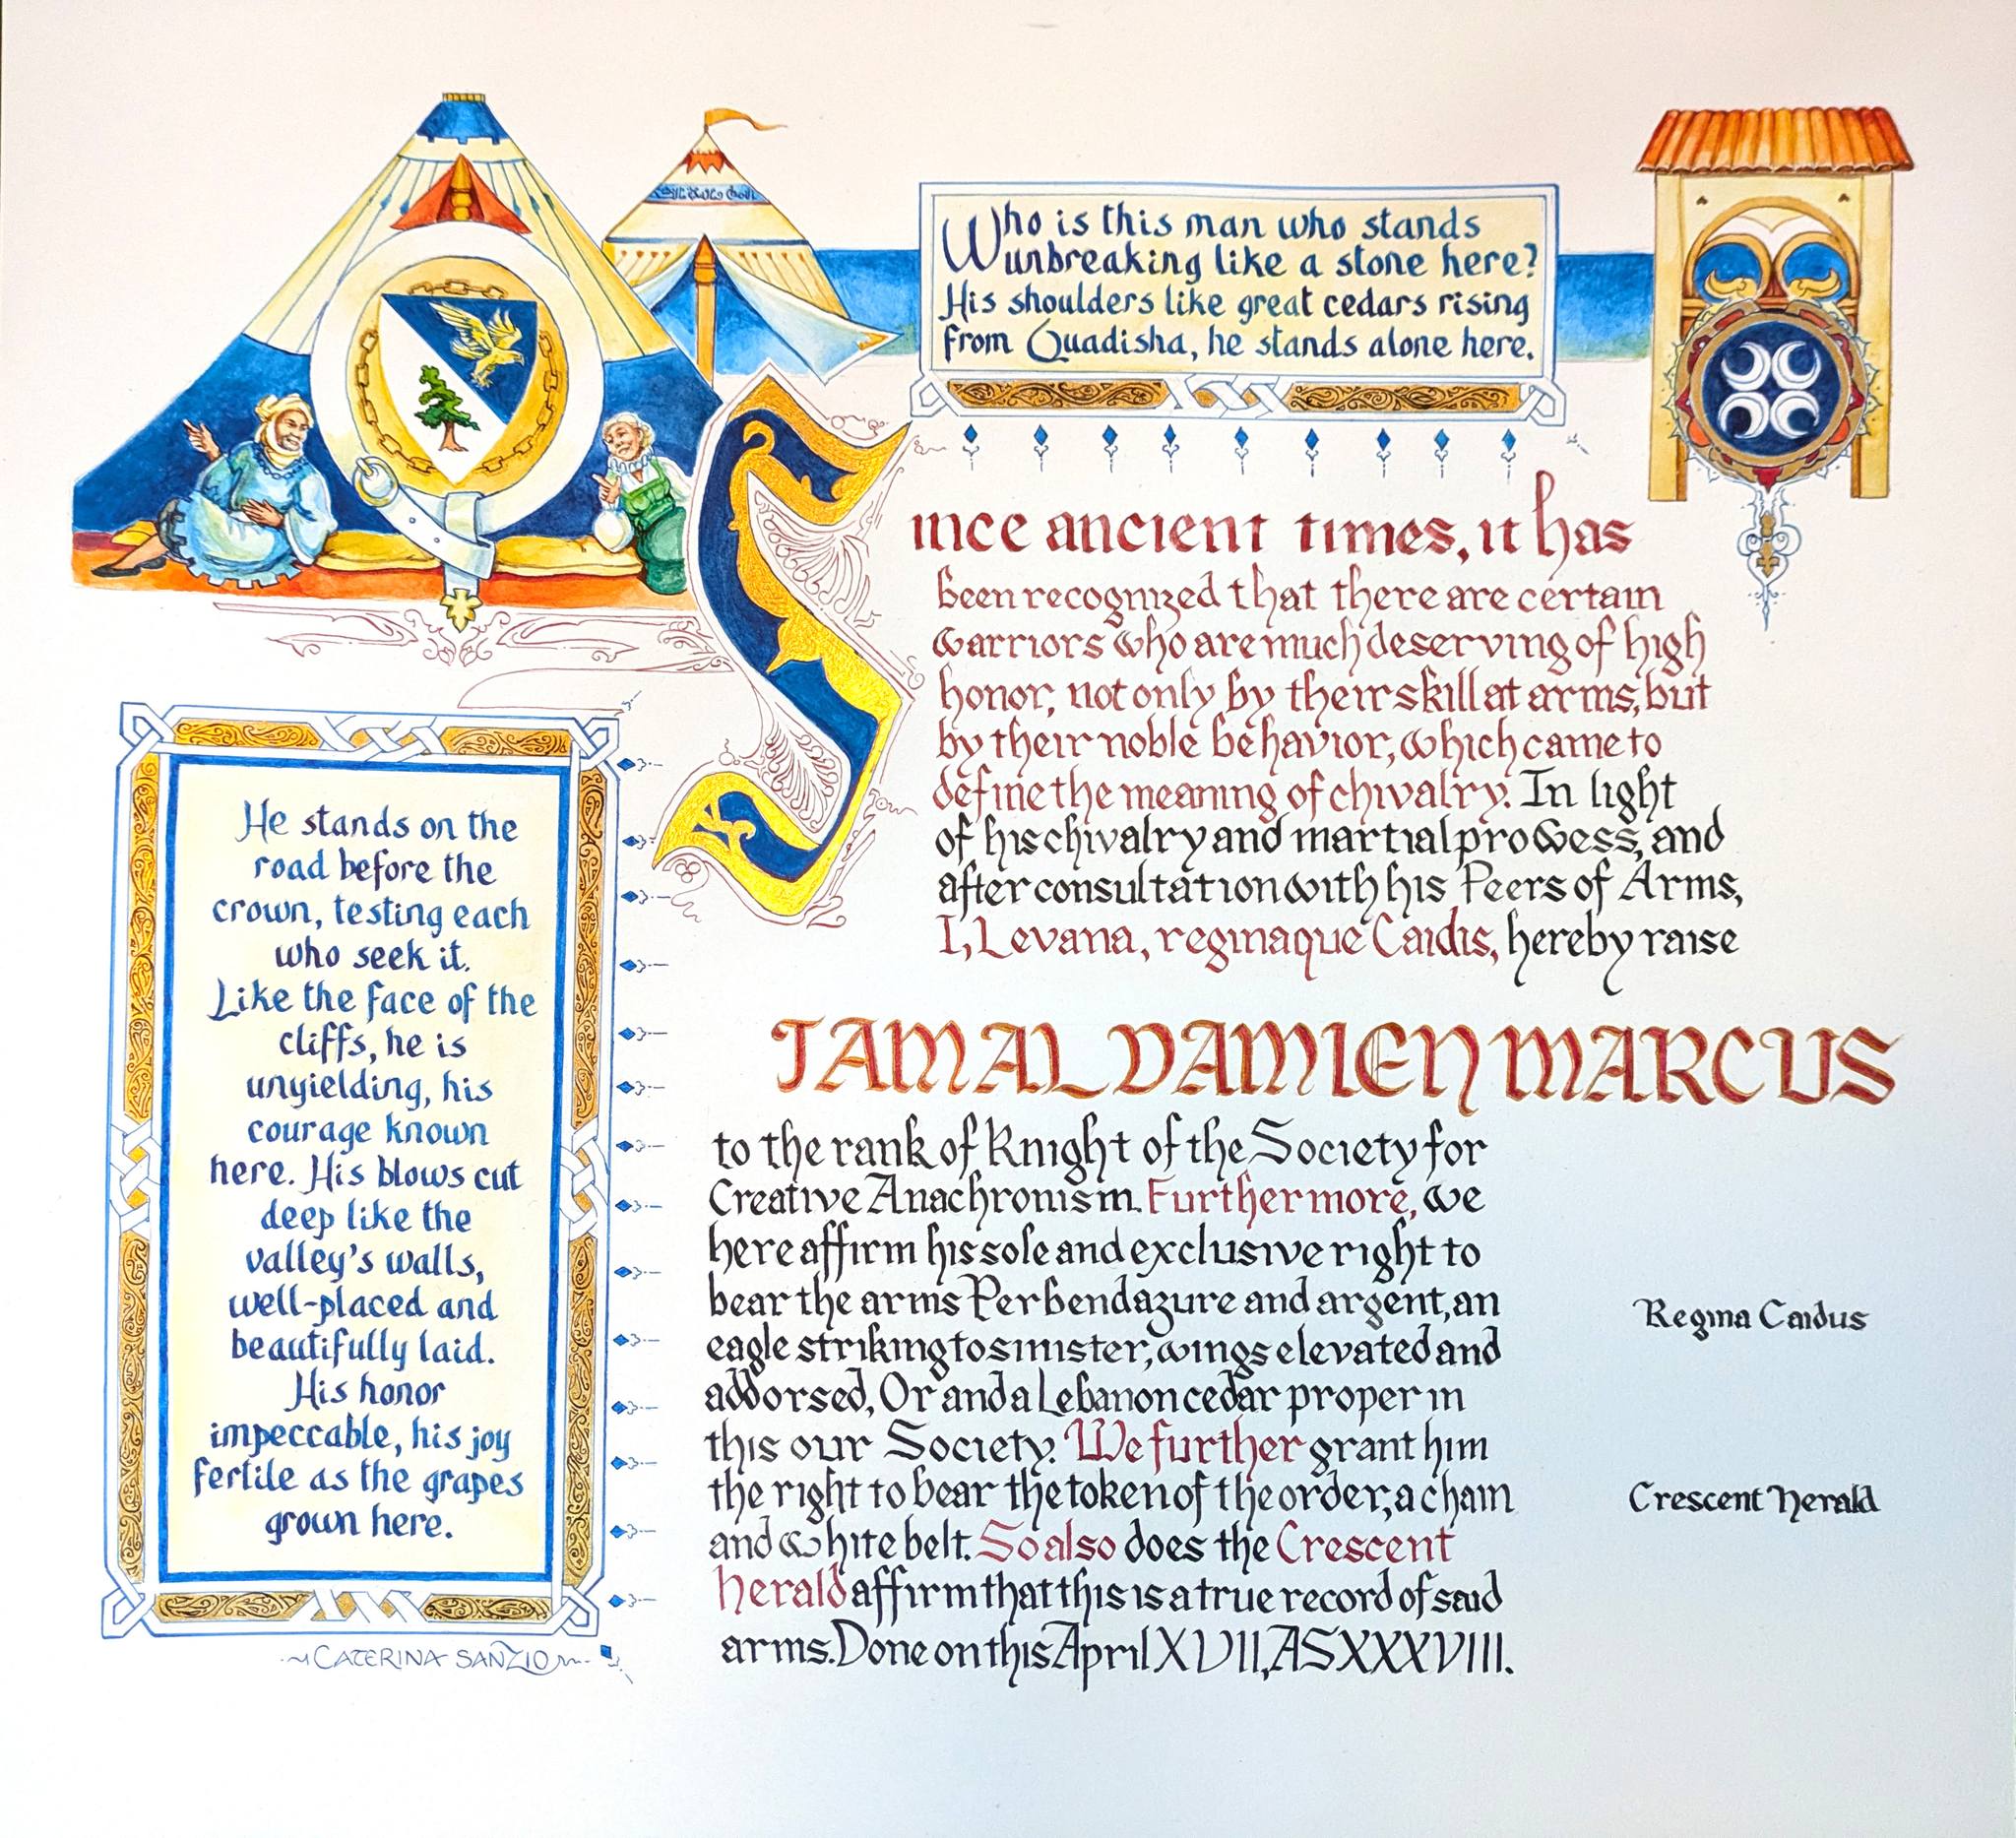 Who is this man who stands
unbreaking like a stone here?
His shoulders like great cedars rising
from Quadisha, he stands alone here.
Since ancient times, it has
been recognized that there are certain
warriors who are much deserving of high
honor, not only by their skill at arms, but
by their noble behavior, which came to
define the meaning of chivalry. In light
of his chivalry and martial prowess, and
after consultation with his Peers of Arms,
I, Levana, reginaque Caidis, hereby raise
JAMAL DAMIEN MARCUS
to the rank of Knight of the Society for
Creative Anachronism. Furthermore, we
here affirm his sole and exclusive right to
bear the arms Per bend azure and argent, an
eagle striking to sinister, wings elevated and
addorsed, Or and a Lebanon cedar proper in
this our Society. We further grant him
the right to bear the token of the order, a chain
and white belt. So also does the Crescent
Herald affirm that this is a true record of said
arms. Done on this April XVII, AS XXXVIII.
Regina Caidus
Crescent Herald
He stands on the
road before the
crown, testing each
who seek it.
Like the face of the
cliffs, he is
unyielding, his
courage known
here. His blows cut
deep like the
valley's walls,
well-placed and
beautifully laid.
His honor
impeccable, his joy
fertile as the grapes
grown here.
CATERINA SANZIO